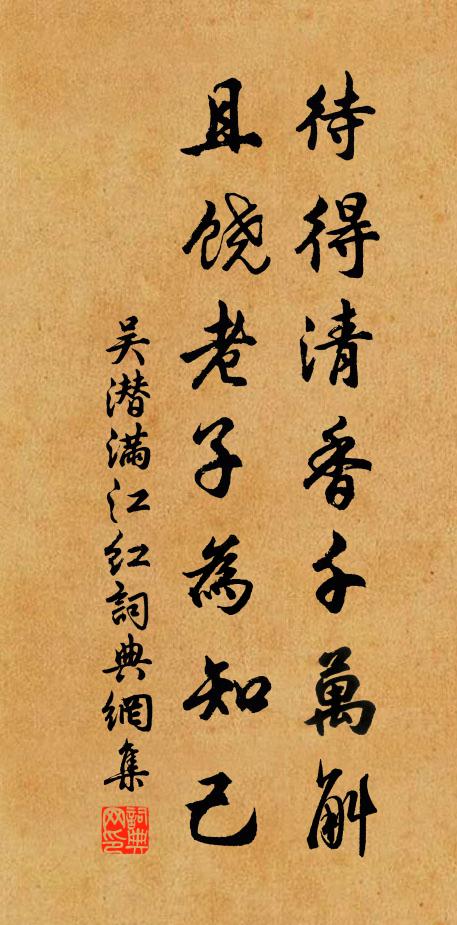 待得清香千萬斛
且饶老子為知己
吴潜满江红詞典網集
詞典网印